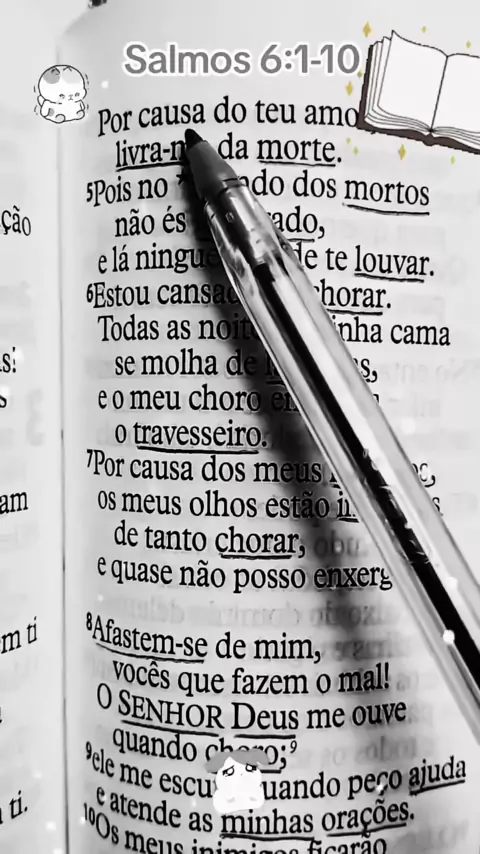 Salmos 6:1-10
Por causa do teu amo
livra-m da morte.
5Pois no do dos mortos
não és ado,
e lá ningué de te louvar.
6Estou cansa chorar.
Todas as noit inha cama
se molha de s,
e o meu choro en
o travesseiro.
7Por causa dos meus
os meus olhos estão i
de tanto chorar,
e quase não posso enxerg
8Afastem-se de mim,
vocês que fazem o mal!
O SENHOR Deus me ouve
quando choro;
9ele me escu uando peço ajuda
e atende as minhas orações.
10Os meus inimigos ficarão
ção
s!
s
am
m ti
ti.